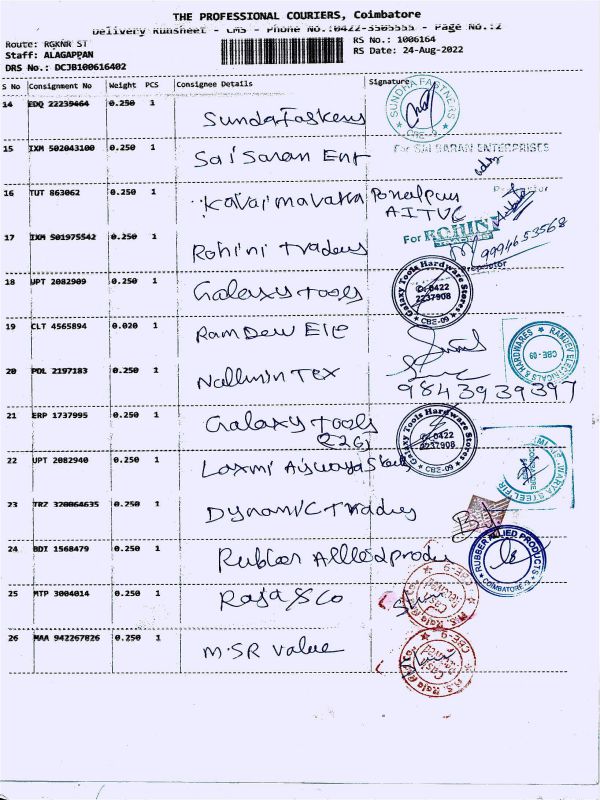 THE PROFESSIONAL COURIERS, Coimbatore
Delivery Runsheet - CMS - Phone No.:0422-3505555 - Page No.:2
Route: RGKNR ST
RS No.: 1006164
Staff: ALAGAPPAN
RS Date: 24-Aug-2022
DRS No.: DCJB100616402
S No Consignment No Weight PCS Consignee Details Signature
14 EDQ 22239464 0.250 1 Sunda Faskens
SUNDRA FASTNERS CBE-9
15 IXM 502043100 0.250 1 Sai Saran Ent
For SAI SARAN ENTERPRISES
16 TUT 863062 0.250 1
AITUC
17 IXM 501975542 0.250 1 Rohini Traders
For ROHINI
9994653568
Proprietor
18 UPT 2082909 0.250 1 Galaxy Tools
Galaxy Tools Hardware Stores 0422 2237908 CBE-09
19 CLT 4565894 0.020 1 Ram Dew Ele
RAMDEV ELECTRICALS & HARDWARES CBE-09
20 PDL 2197183 0.250 1 Nallmin Tex
9843939397
21 ERP 1737995 0.250 1 Galaxy Tools
226)
Galaxy Tools Hardware Stores 0422 2237908 CBE-09
22 UPT 2082940 0.250 1 Laxmi
23 TRZ 320064635 0.250 1 Dynamic Traders
24 BDI 1568479 0.250 1 Rubber Allied produ
RUBBER ALLIED PRODUCTS COIMBATORE-9
25 MTP 3004014 0.250 1 Raja & Co
CBE-9
26 MAA 942267826 0.250 1 M.SR value
CBE-9